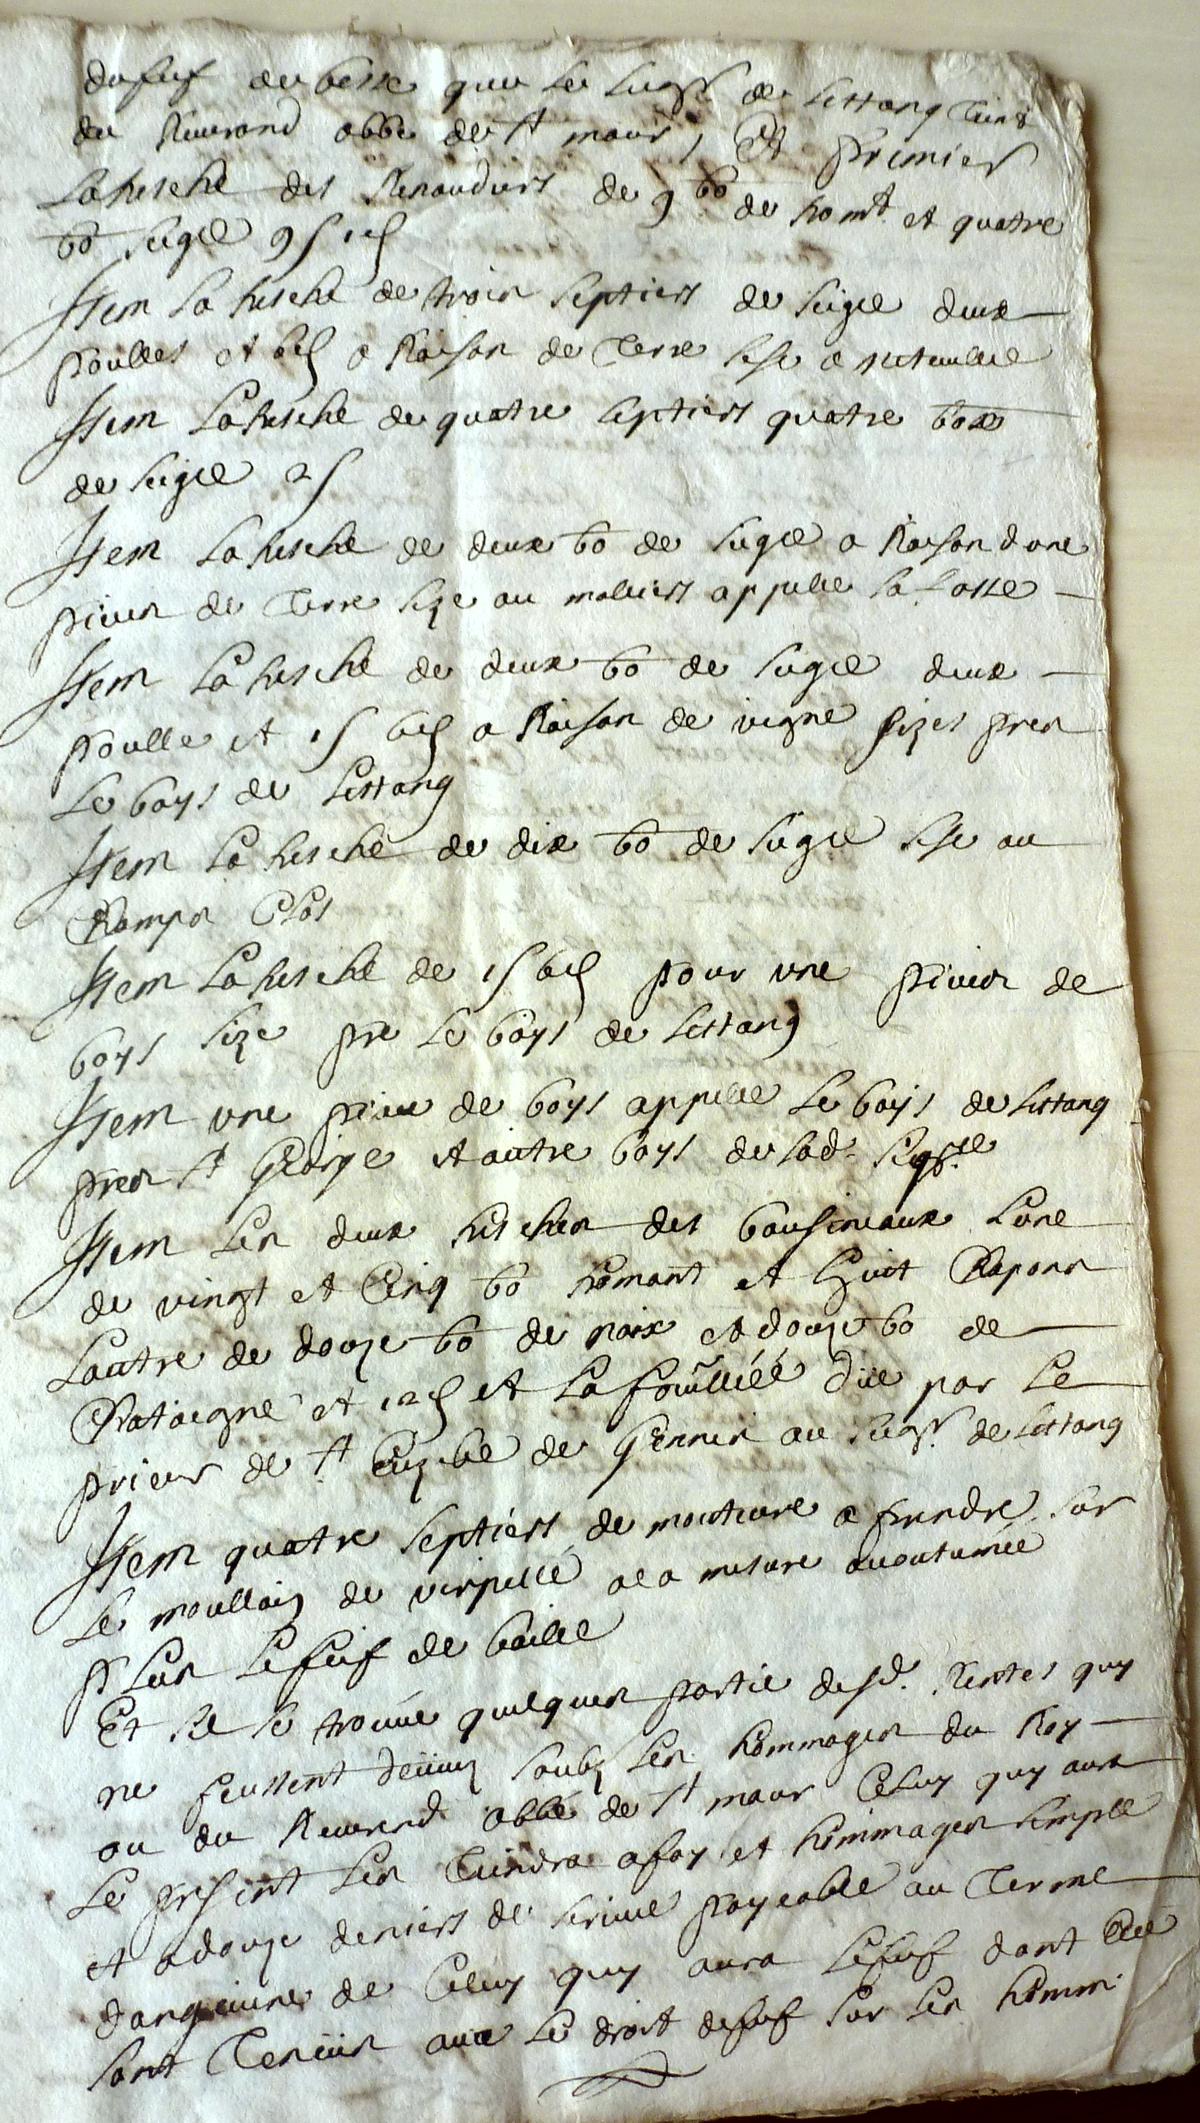 du fief de besse que le seigr de Lestang tient
du Reverand abbé de st maur, Et premier
La fresche des Renaudiers de 9 bo de fromt et quatre
bo seigle 9 s
Item La fresche de trois septiers de seigle deux
poulles et a Raison de Terre sise a
Item La fresche de quatre septiers quatre boox
de seigle 2 s
Item La fresche de deux bo de seigle a Raison dune
piece de Terre size au appellee la fosse
Item La fresche de deux bo de seigle deux
poulle et a Raison de vigne sizes pres
Le boys de Lestang
Item La fresche de dix bo de seigle sise au
Champs Clos
Item La fresche de pour une piece de
boys size pre Le boys de Lestang
Item une piece de boys appellé Le boys de Lestang
pres st George et autre boys de lad. seigrie
Item Les deux fresches des Lune
de vingt et Cinq bo fromant et huit Chapons
Lautre de douze bo de noix et douze bo de
Chataigne et 12 d et La fouillée düe par Le
prieur de st Euzebe de Gennes au seigr de Lestang
Item quatre septiers de mouture a prendre sur
Le moullain de a la mesure acoutumée
P Sur Le fief de
Et se trouve quelques partie desd. Rentes quy
ne feussent soubz Les hommages du Roy
ou du Reverend abbé de st maur Celuy quy aura
Le present Les Tiendra a foy et hommages simple
et a douze deniers de servie payeable au Terme
dangevine de Celuy quy aura Le fief dont Elle
sont Tenües avec Le droit de fief sur Les homm